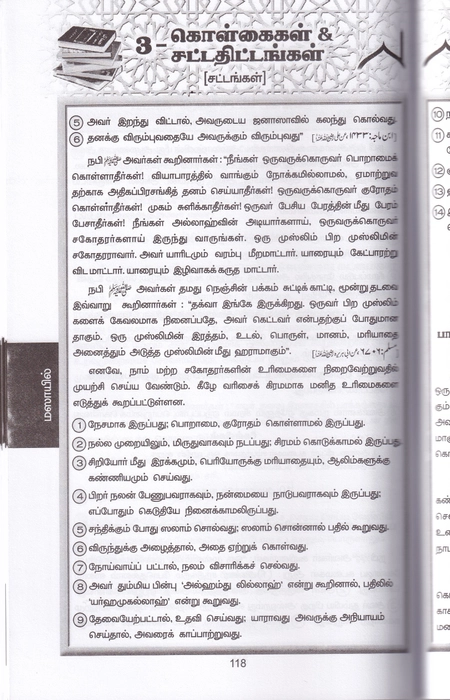 3 - கொள்கைகள் &
சட்டதிட்டங்கள்
[சட்டங்கள்]
5 அவர் இறந்து விட்டால், அவருடைய ஜனாஸாவில் கலந்து கொல்வது.
6 தனக்கு விரும்புவதையே அவருக்கும் விரும்புவது"
நபி ﷺ அவர்கள் கூறினார்கள் : "நீங்கள் ஒருவருக்கொருவர் பொறாமை
கொள்ளாதீர்கள்! வியாபாரத்தில் வாங்கும் நோக்கமில்லாமல், ஏமாற்றுவ
தற்காக அதிகப்பிரசங்கித் தனம் செய்யாதீர்கள்! ஒருவருக்கொருவர் குரோதம்
கொள்ளார்கள்! முகம் சுளிக்காதீர்கள்! ஒருவர் பேசிய பேரத்தின் மீது பேரம்
பேசாதீர்கள்! நீங்கள் அல்லாஹ்வின் அடியார்களாய், ஒருவருக்கொருவர்
சகோதரர்களாய் இருந்து வாருங்கள். ஒரு முஸ்லிம் பிற முஸ்லிமின்
சகோதரராவார். அவர் யாரிடமும் வரம்பு மீறமாட்டார். யாரையும் கேட்பாரற்று
விட மாட்டார். யாரையும் இழிவாகக் கருத மாட்டார்.
நபி ﷺ அவர்கள் தமது நெஞ்சின் பக்கம் சுட்டிக் காட்டி, மூன்று தடவை
இவ்வாறு கூறினார்கள் : "தக்வா இங்கே இருக்கிறது. ஒருவர் பிற முஸ்லிம்
களைக் கேவலமாக நினைப்பதே, அவர் கெட்டவர் என்பதற்குப் போதுமான
தாகும். ஒரு முஸ்லிமின் இரத்தம், உடல், பொருள், மானம், மரியாதை
அனைத்தும் அடுத்த முஸ்லிமின் மீது ஹராமாகும்".
எனவே, நாம் மற்ற சகோதரர்களின் உரிமைகளை நிறைவேற்றுவதில்
முயற்சி செய்ய வேண்டும். கீழே வரிசைக் கிரமமாக மனித உரிமைகளை
எடுத்துக் கூறப்பட்டுள்ளன.
1 நேசமாக இருப்பது; பொறாமை, குரோதம் கொள்ளாமல் இருப்பது.
2 நல்ல முறையிலும், மிருதுவாகவும் நடப்பது; சிரமம் கொடுக்காமல் இருப்பது.
3 சிறியோர் மீது இரக்கமும், பெரியோருக்கு மரியாதையும், ஆலிம்களுக்கு
கண்ணியமும் செய்வது.
4 பிறர் நலன் பேணுபவராகவும், நன்மையை நாடுபவராகவும் இருப்பது;
எப்போதும் கெடுதியே நினைக்காமலிருப்பது.
5 சந்திக்கும் போது ஸலாம் சொல்வது; ஸலாம் சொன்னால் பதில் கூறுவது.
6 விருந்துக்கு அழைத்தால், அதை ஏற்றுக் கொள்வது.
7 நோய்வாய்ப் பட்டால், நலம் விசாரிக்கச் செல்வது.
8 அவர் தும்மிய பின்பு 'அல்ஹம்து லில்லாஹ்' என்று கூறினால், பதிலில்
'யர்ஹமுகல்லாஹ்' என்று கூறுவது.
9 தேவையேற்பட்டால், உதவி செய்வது; யாராவது அவருக்கு அநியாயம்
செய்தால், அவரைக் காப்பாற்றுவது.
மஸாயில்
118